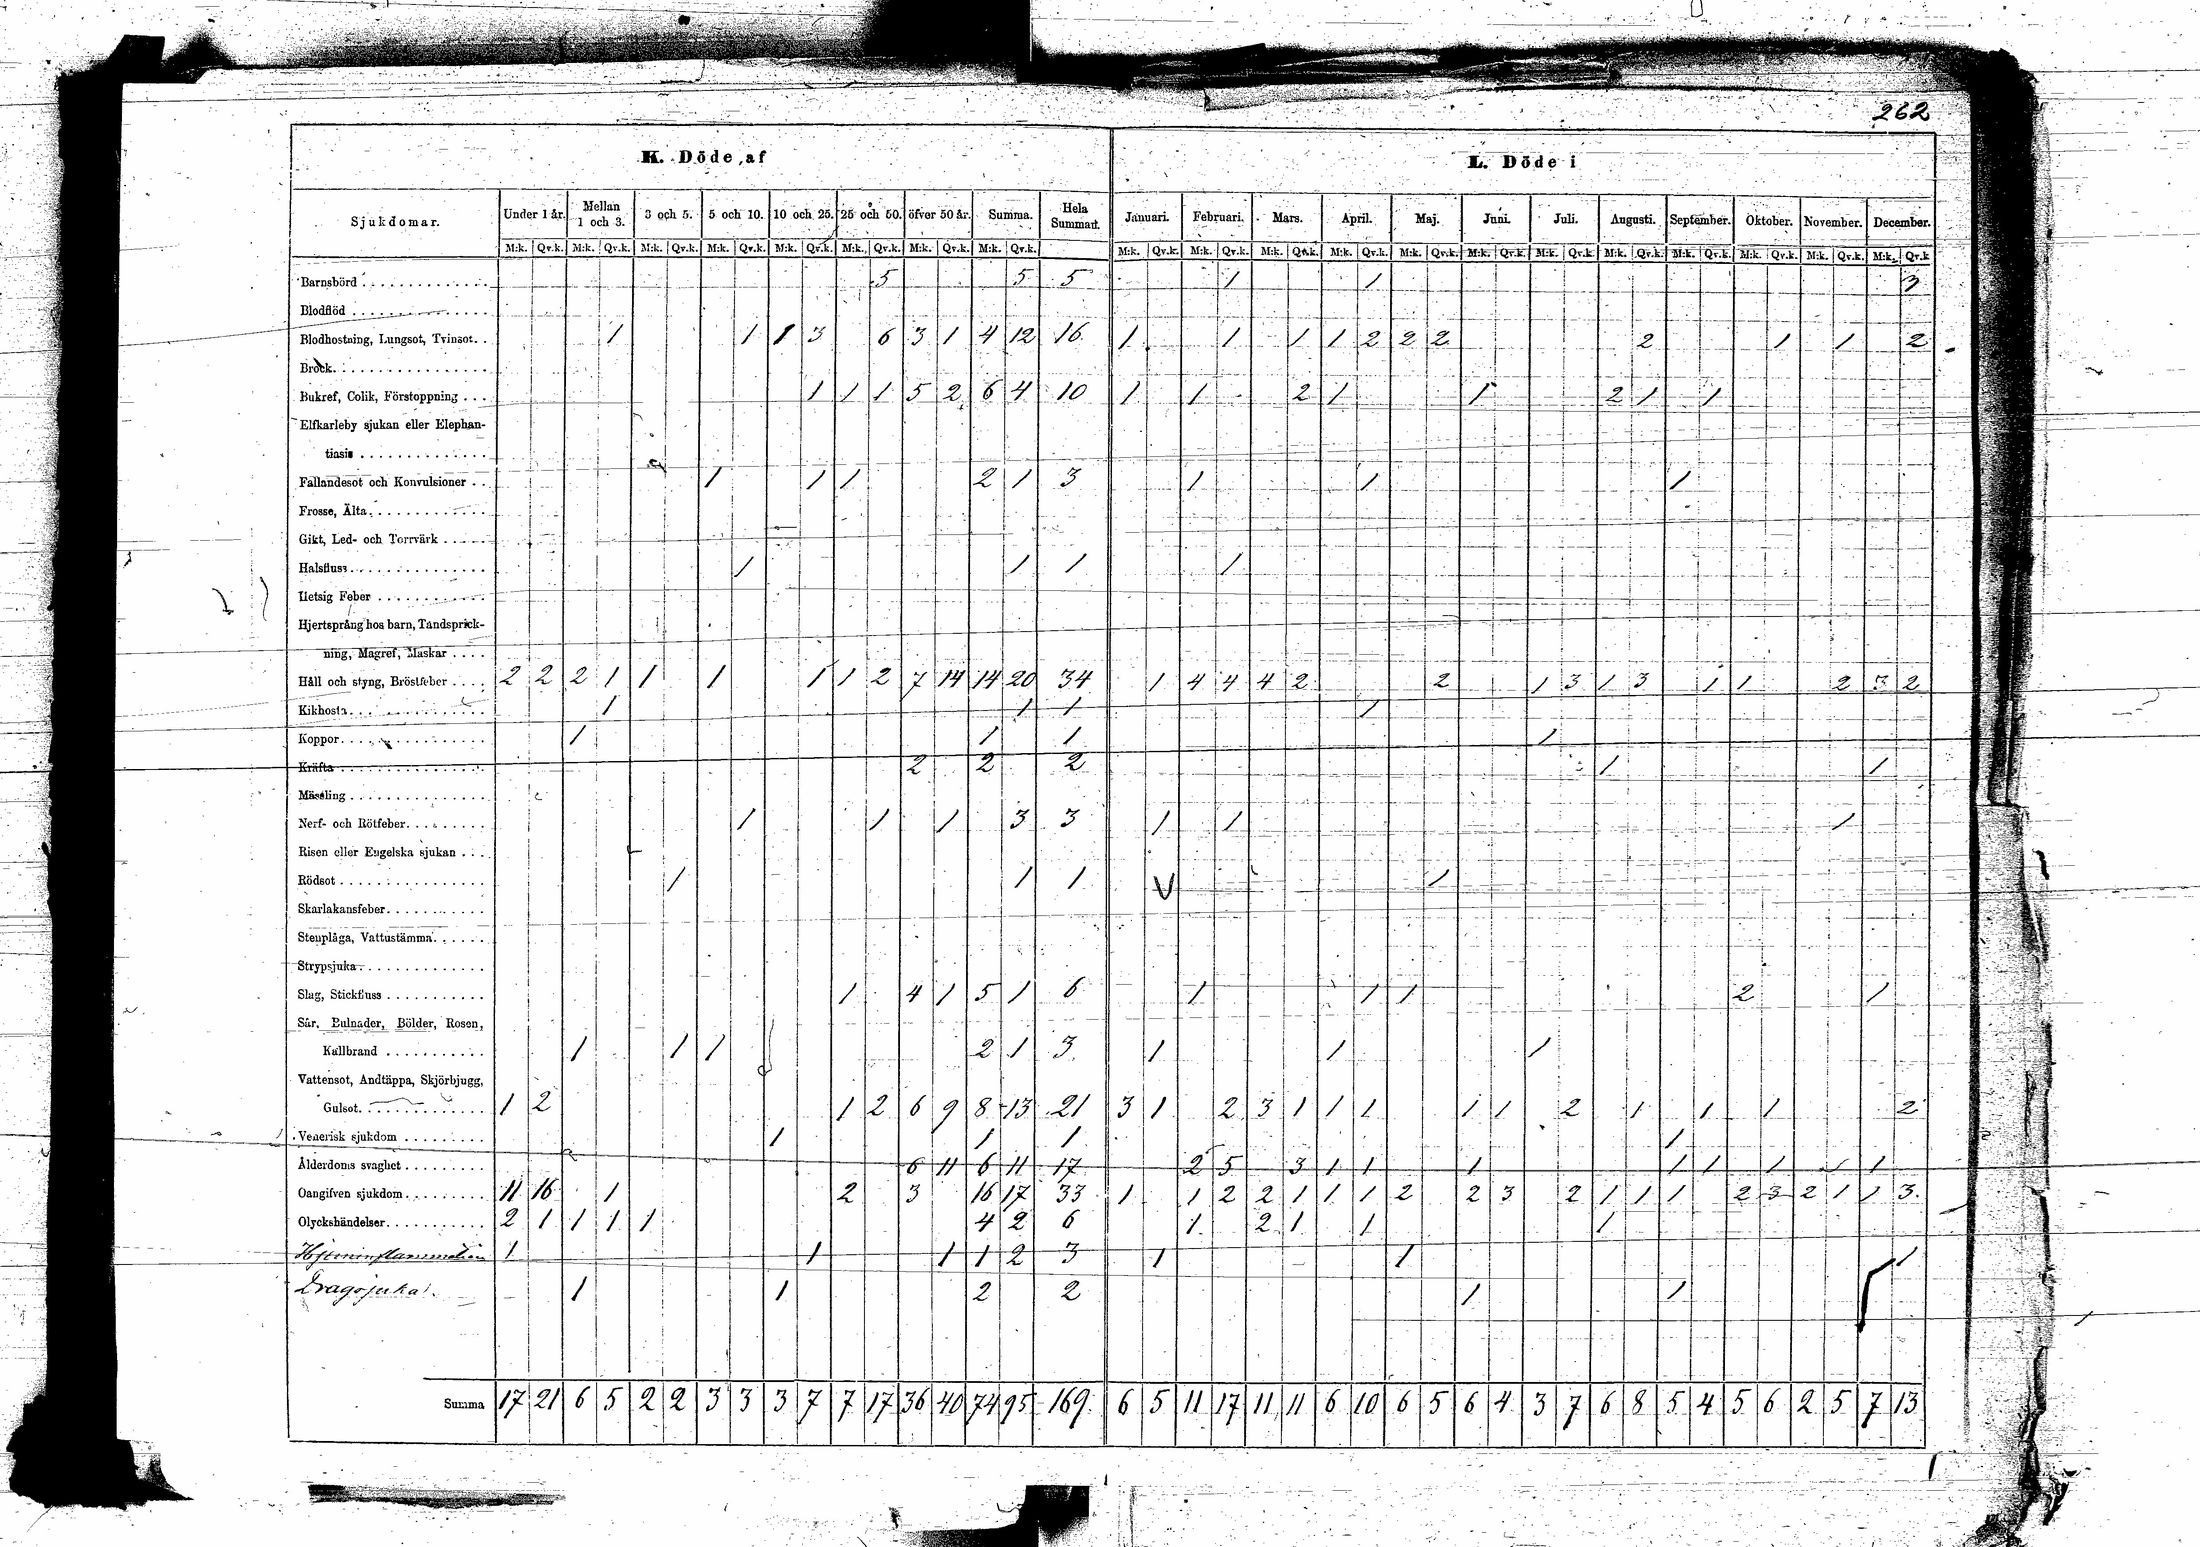 262
K. Döde af
L. Döde i
Sjukdomar. Under 1 år. Mellan 1 och 3. 3 och 5. 5 och 10. 10 och 25. 25 och 50. öfver 50 år. Summa. Hela Summan. Januari. Februari. Mars. April. Maj. Juni. Juli. Augusti. September. Oktober. November. December.
M:k. Qv.k. M:k. Qv.k. M:k. Qv.k. M:k. Qv.k. M:k. Qv.k. M:k. Qv.k. M:k. Qv.k. M:k. Qv.k. M:k. Qv.k. M:k. Qv.k. M:k. Qv.k. M:k. Qv.k. M:k. Qv.k. M:k. Qv.k. M:k. Qv.k. M:k. Qv.k. M:k. Qv.k. M:k. Qv.k. M:k. Qv.k. M:k. Qv.k
Barnsbörd 5 5 5 1 1 3
Blodflöd
Blodhostning, Lungsot, Tvinsot. 1 1 1 3 6 3 1 4 12 16 1 1 1 1 2 2 2 2 1 1 2
Bråck
Bukref, Colik, Förstoppning 1 1 1 5 2 6 4 10 1 1 2 1 1 2 1 1
Elfkarleby sjukan eller Elephan-
tiasis
Fallandesot och Konvulsioner 1 1 1 2 1 3 1 1 1
Frosse, Älta
Gikt, Led- och Torrvärk
Halsfluss 1 1 1 1
Hetsig Feber
Hjertsprång hos barn, Tandsprick-
ning, Magref, Maskar
Håll och styng, Bröstfeber 2 2 2 1 1 1 1 1 2 7 14 14 20 34 1 4 4 4 2 2 1 3 1 3 1 1 2 3 2
Kikhosta 1 1 1 1
Koppor 1 1 1 1
Kräfta 2 2 2 1 1
Mässling
Nerf- och Rötfeber 1 1 1 3 3 1 1 1
Risen eller Engelska sjukan
Rödsot 1 1 1 1
Skarlakansfeber
Stenplåga, Vattustämma
Strypsjuka
Slag, Stickfluss 1 4 1 5 1 6 1 1 1 2 1
Sår, Bulnader, Bölder, Rosen,
Kallbrand 1 1 1 2 1 3 1 1 1
Vattensot, Andtäppa, Skjörbjugg,
Gulsot 1 2 1 2 6 9 8 13 21 3 1 2 3 1 1 1 1 1 2 1 1 1 2
Venerisk sjukdom 1 1 1 1
Ålderdoms svaghet 6 11 6 11 17 2 5 3 1 1 1 1 1 1 1 1
Oangifven sjukdom 11 16 1 2 3 16 17 33 1 1 2 2 1 1 1 2 2 3 2 1 1 1 2 3 2 1 1 3
Olyckshändelser 2 1 1 1 1 4 2 6 1 2 1 1 1
Hjerninflammation 1 1 1 1 2 3 1 1 1
Dragsjuka 1 1 2 2 1 1
Summa 17 21 6 5 2 2 3 3 3 7 7 17 36 40 74 95 169 6 5 11 17 11 11 6 10 6 5 6 4 3 7 6 8 5 4 5 6 2 5 7 13